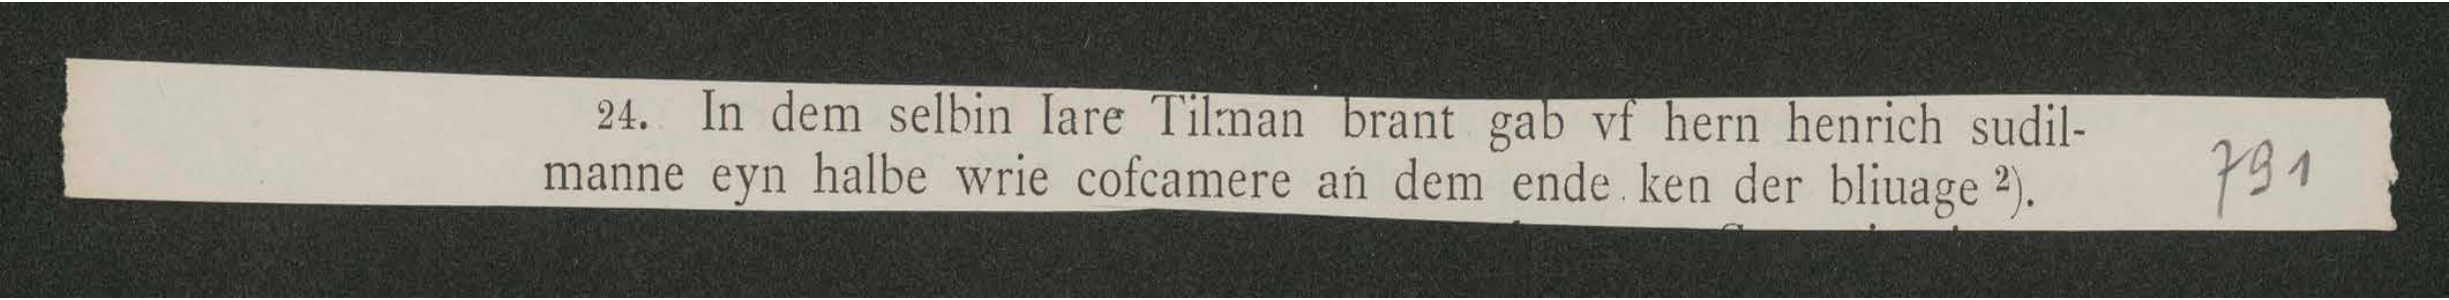 24. In dem selbin Iare Tilman brant gab vf hern henrich sudil-
manne eyn halbe wrie cofcamere an dem ende ken der bliuage ²).
791